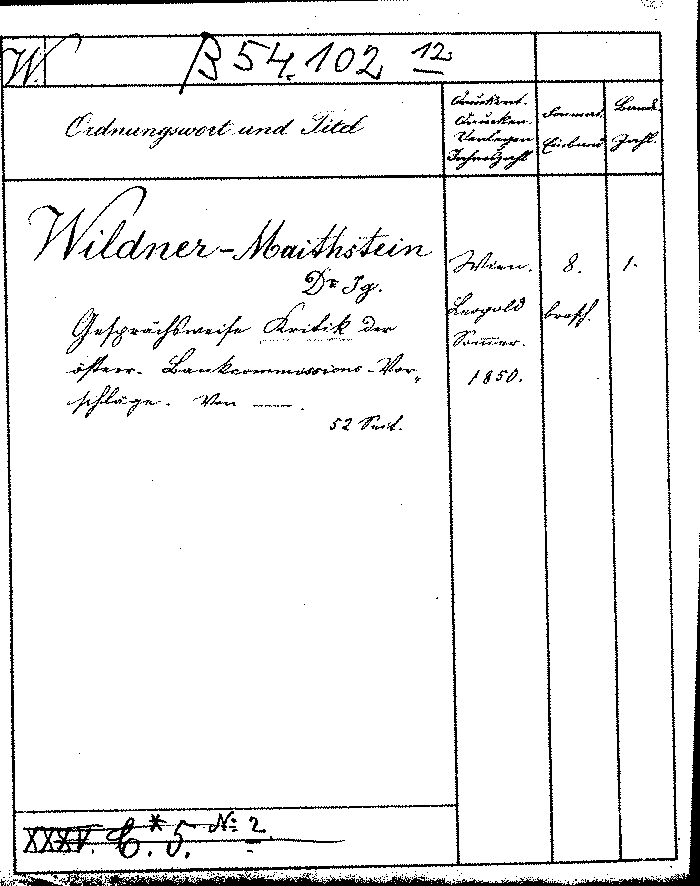 W. B 54.102 12
Ordnungswort und Titel
Druckort.
Drucker.
Verleger
Jahreszahl
Format.
Einband
Band-
Zahl.
Wildner-Maithstein
Dr Ig.
Gesprächsweise Kritik der
österr. Bankcommissions-Vor-
schläge. Von —.
52 Seit.
Wien.
Leopold
Sommer.
1850.
8.
brosch.
1.
XXXV. C.* 5. No 2